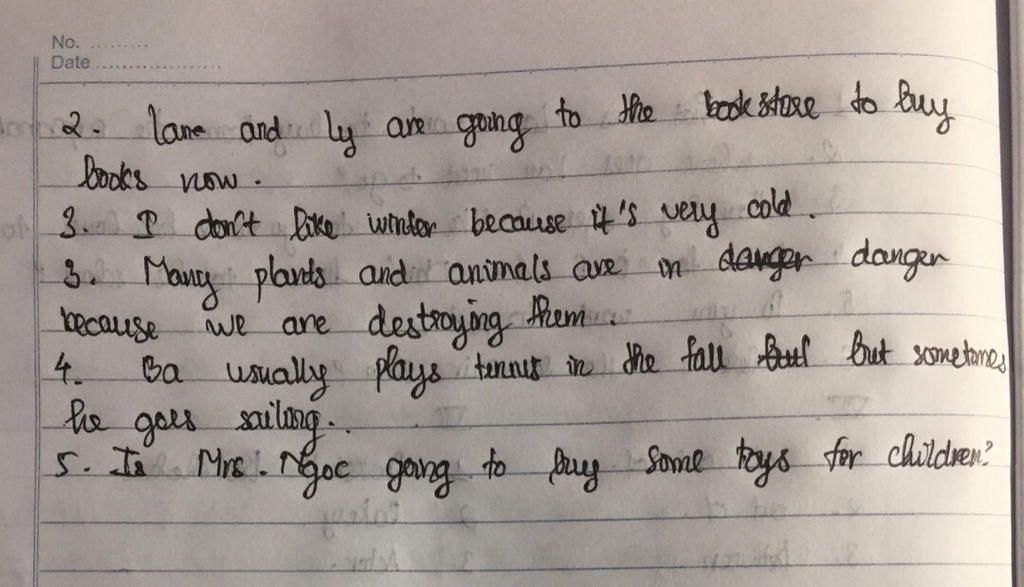 No. .........
Date ...................
2. lane and ly are going to the bookstore to buy
books now.
3. I don't like winter because it's very cold.
3. Many plants and animals are in danger danger
because we are destroying them.
4. Ba usually plays tennis in the fall but but sometimes
he goes sailing..
5. Is Mrs. Ngoc going to buy some toys for children?